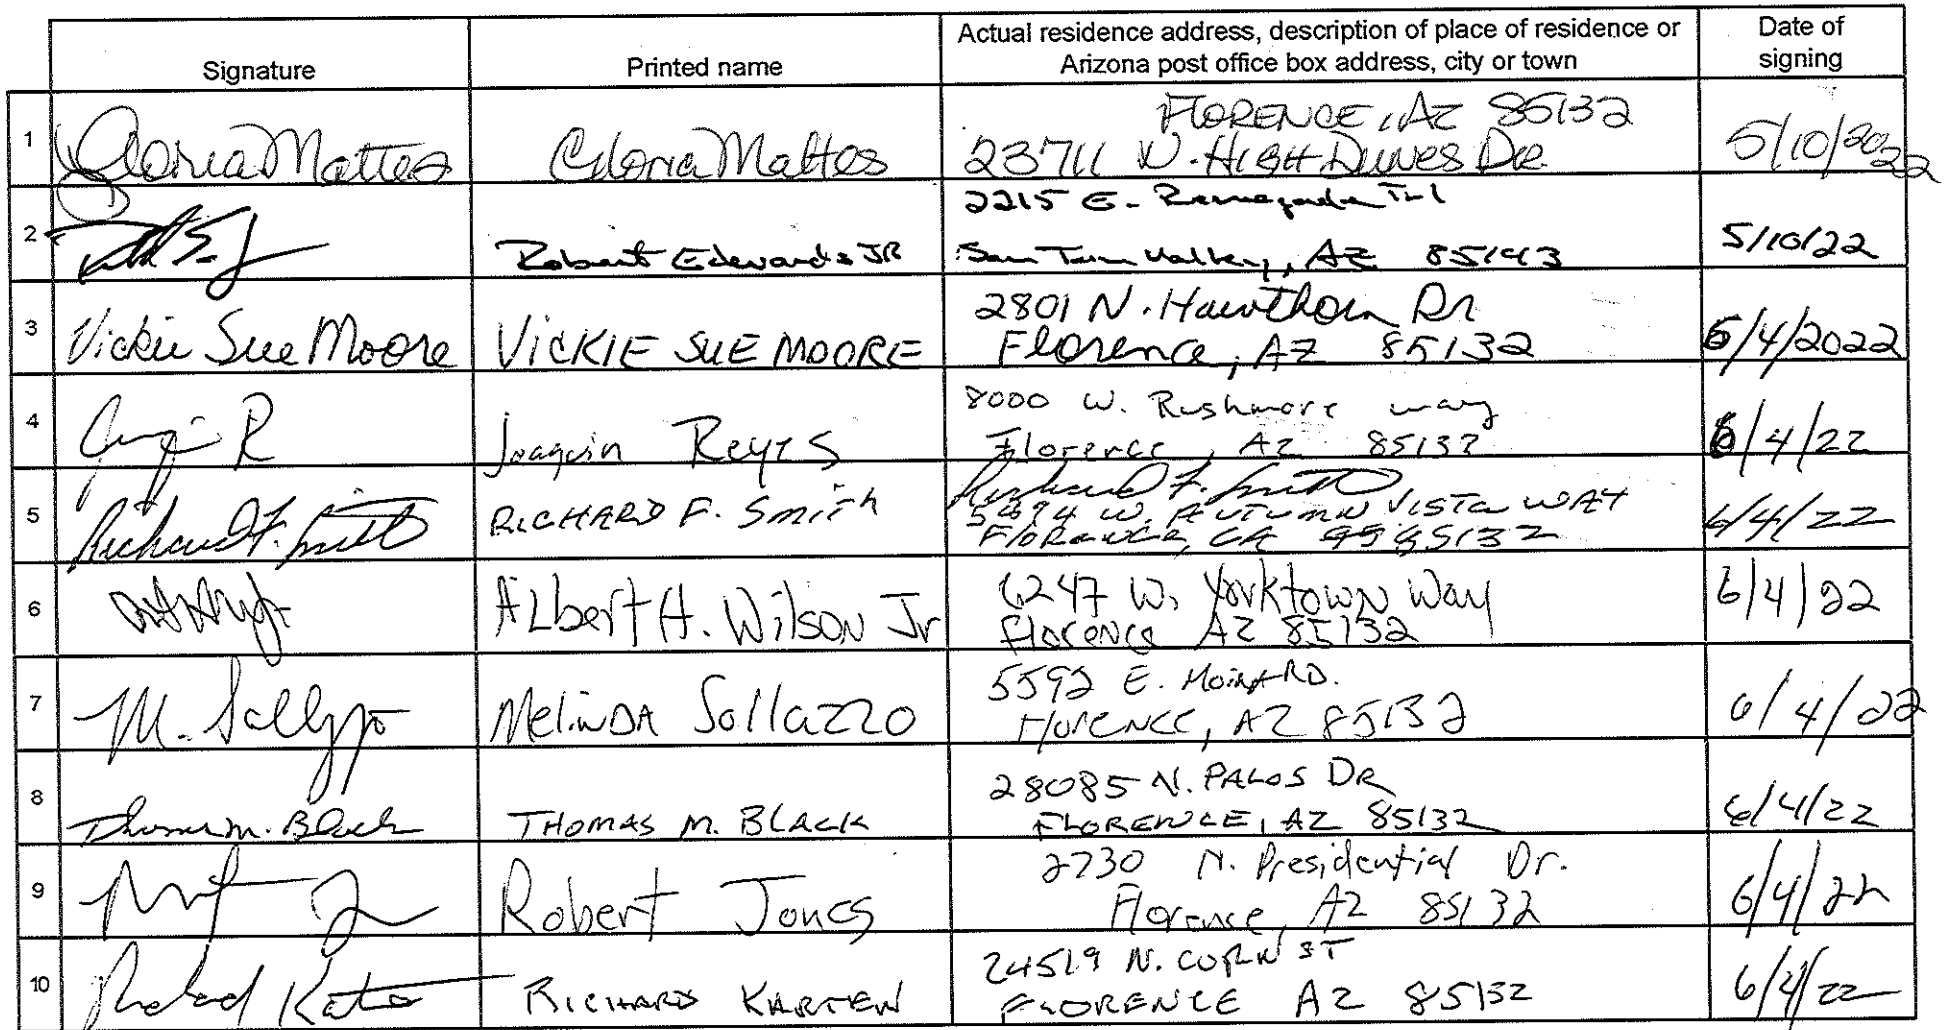 Signature
Printed name
Actual residence address, description of place of residence or
Arizona post office box address, city or town
Date of
signing
1
Gloria Mattos
Gloria Mattos
FLORENCE, AZ 85132
23711 N. HIGH DUNES DR.
5/10/2022
2
Robert Edwards JR
2215 E.
San Tan Valley, AZ 85143
5/10/22
3
Vickie Sue Moore
VICKIE SUE MOORE
2801 N. Hawthorn Dr
Florence, AZ 85132
6/4/2022
4
Joaquin Reyes
8000 W. Rushmore way
Florence, AZ 85132
6/4/22
5
Richard F. Smith
RICHARD F. Smith
Richard F. Smith
W. AUTUMN VISTA WAY
FLORENCE, CA 85132
6/4/22
6
ALbert H. Wilson Jr
6247 W. Yorktown Way
Florence AZ 85132
6/4/22
7
M. Sollazzo
MelinDA Sollazzo
5592 E. RD.
Florence, AZ 85132
6/4/22
8
Thomas M. Black
THOMAS M. BLACK
28085 N. PALOS DR
FLORENCE, AZ 85132
6/4/22
9
Robert Jones
2730 N. Presidential Dr.
Florence, AZ 85132
6/4/22
10
Richard
RICHARD KARTEN
24519 N. CORN ST
FLORENCE AZ 85132
6/4/22